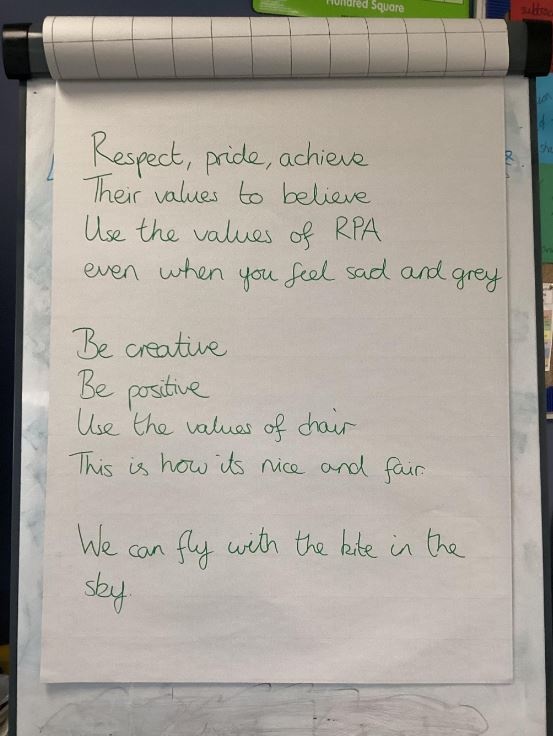 Hundred Square
Respect, pride, achieve
Their values to believe
Use the values of RPA
even when you feel sad and grey
Be creative
Be positive
Use the values of chair
This is how its nice and fair.
We can fly with the kite in the
sky.